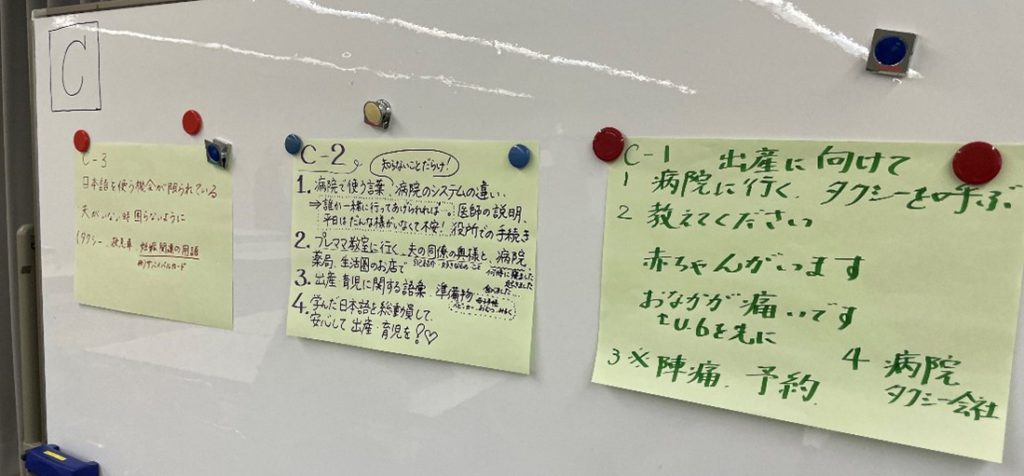 C
C-3
日本語を使う機会が限られている
夫がいない時 困らないように
(タクシー、救急車、妊娠関連の用語
サバイバルカード
C-2
知らないことだらけ!
1. 病院で使う言葉、病院のシステムの違い、
⇒誰か一緒に行ってあげられれば…。医師の説明、
平日はだんな様がいなくて不安! 役所での手続き
2. プレママ教室に行く、夫の同僚の奥様と、病院
薬局、生活圏のお店で
3. 出産 育児に関する語彙、準備物
4. 学んだ日本語を総動員して、
安心して 出産 育児を!♡
C-1 出産に向けて
1 病院に行く、タクシーを呼ぶ
2 教えてください
赤ちゃんがいます
おなかが痛いです
tu.6を先に
3 ※陣痛、予約
4 病院
タクシー会社